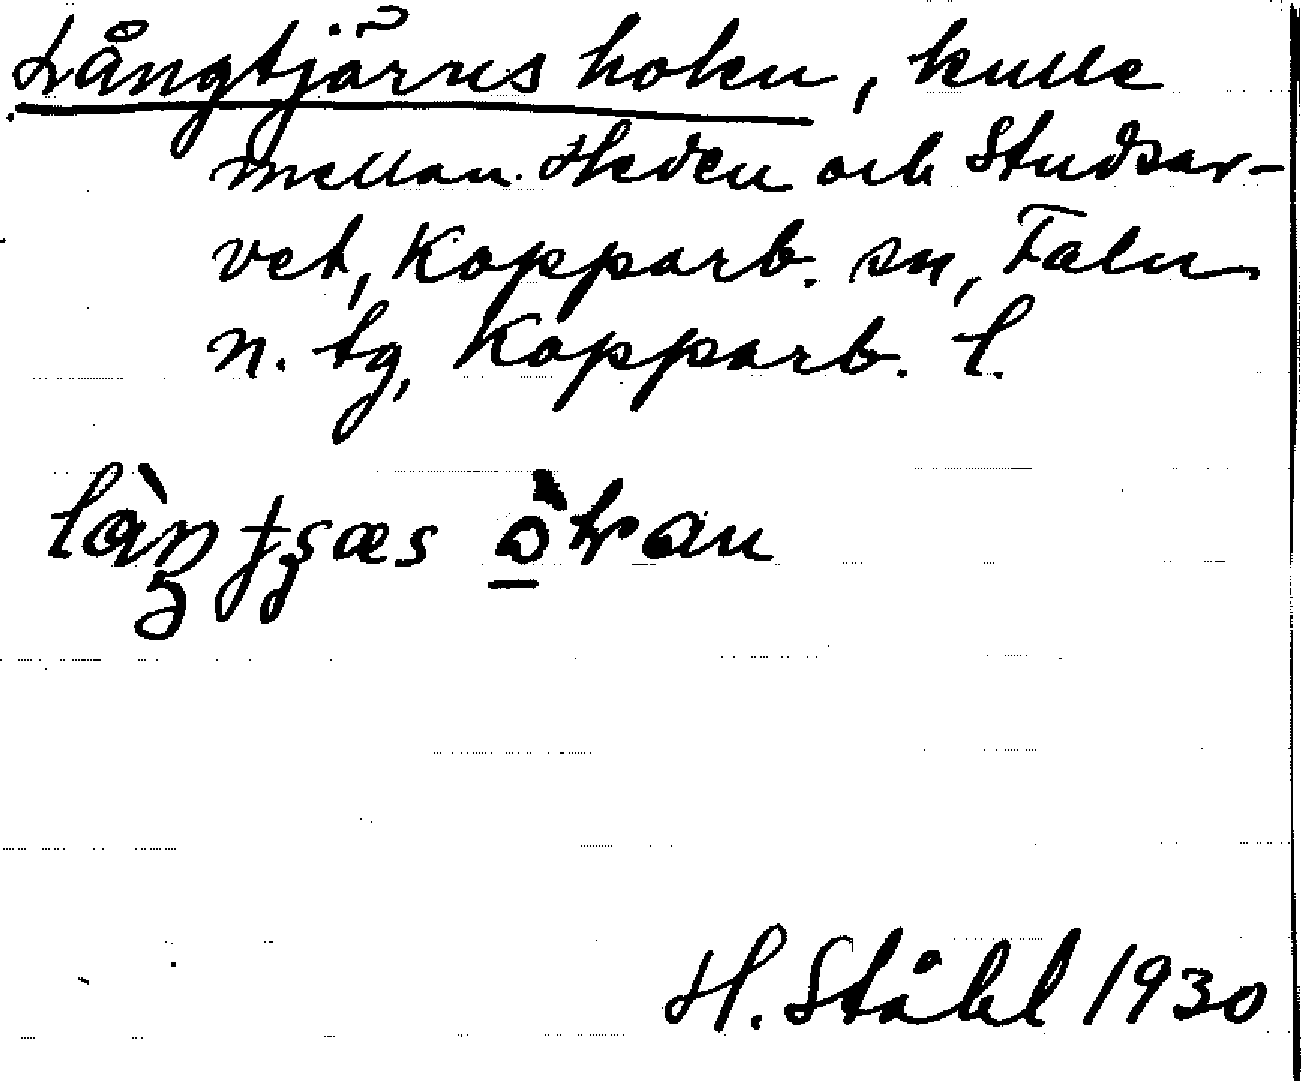 Långtjärns hoken, kulle
mellan Heden och Studsar-
vet, Kopparb. sn, Falu
n. tg, Kopparb. l.
H. Ståhl 1930